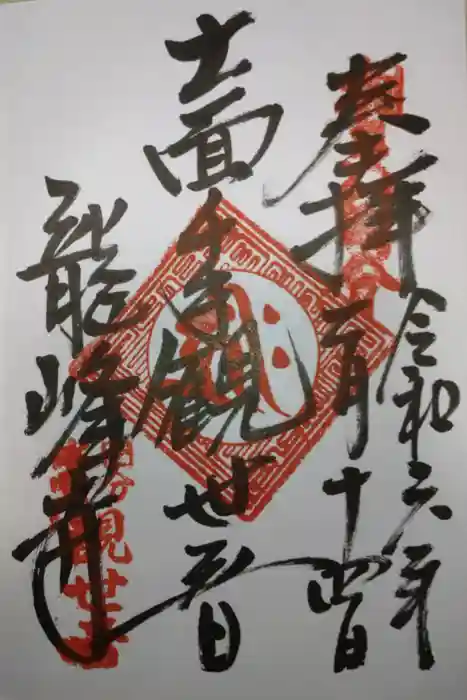 奉拝
令和六年
二月十四日
十一面千手観世音
龍峰寺